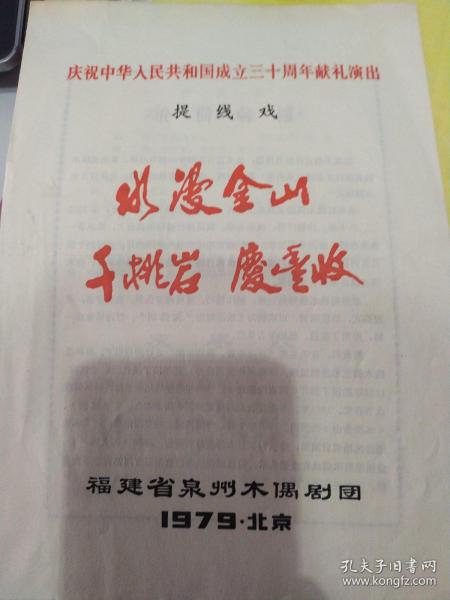 庆祝中华人民共和国成立三十周年献礼演出
提线戏
水漫金山
千桃岩 慶丰收
福建省泉州木偶剧团
1979·北京
孔夫子旧书网
www.kongfz.com